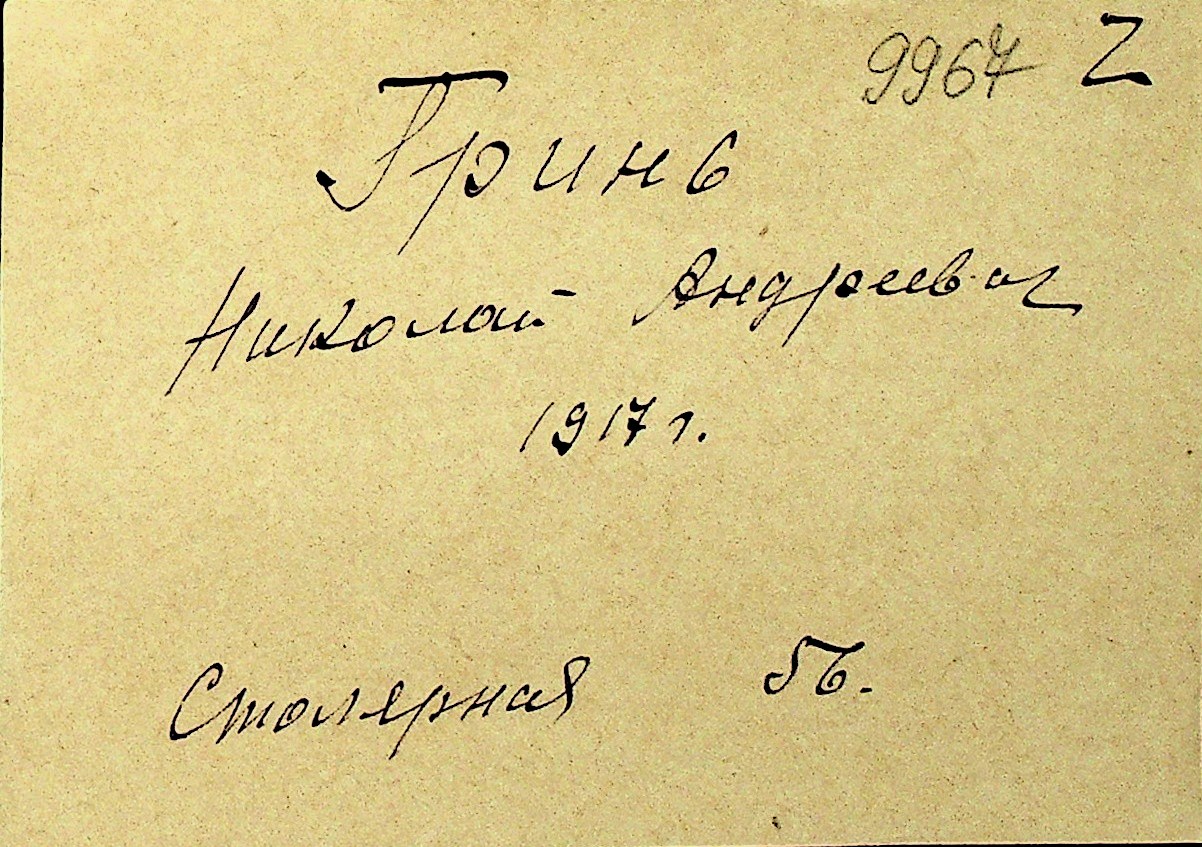 9967 2
Гринь
Николай Андреевич
1917 г.
Столярная 5б.